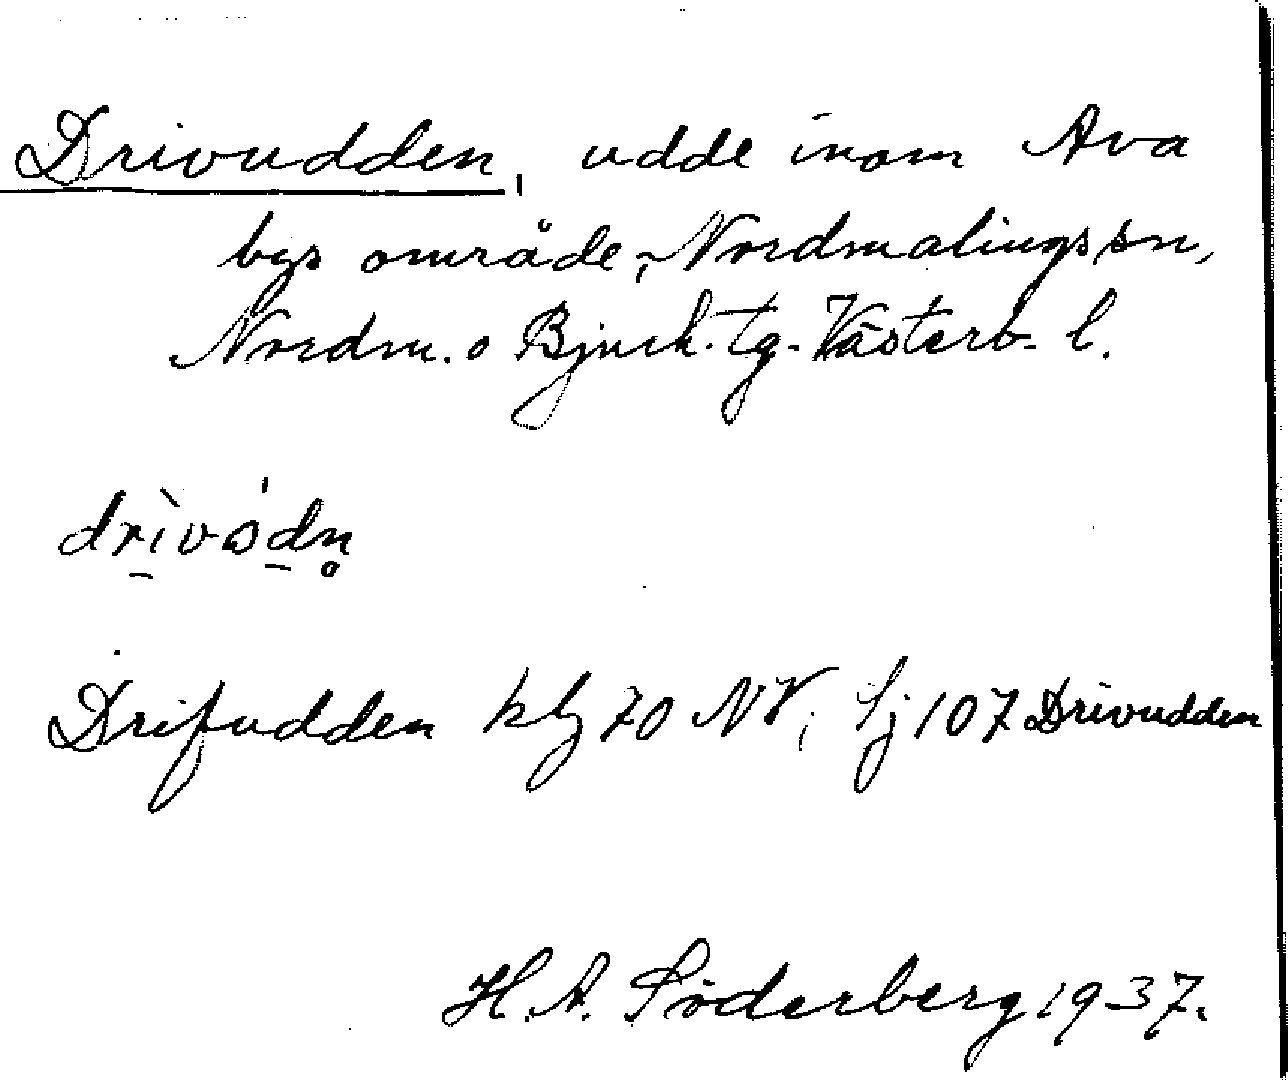 Drivudden, udde inom Ava
bys område, Nordmalings sn,
Nordm. o Bjurh. tg. Västerb. l.
drìvòdn̥
Drifudden kbl 70 NV; Sj 107 Drivudden
H. A. Söderberg 1937.